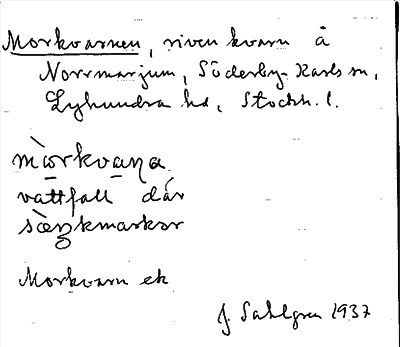 Morkvarnen, riven kvarn å
Norrmarjum, Söderby-Karls sn,
Lyhundra hd, Stockh. l.
mòrkvaɳa.
vattfall där
sæŋkmarkər
Morkvarn ek
J. Sahlgren 1937